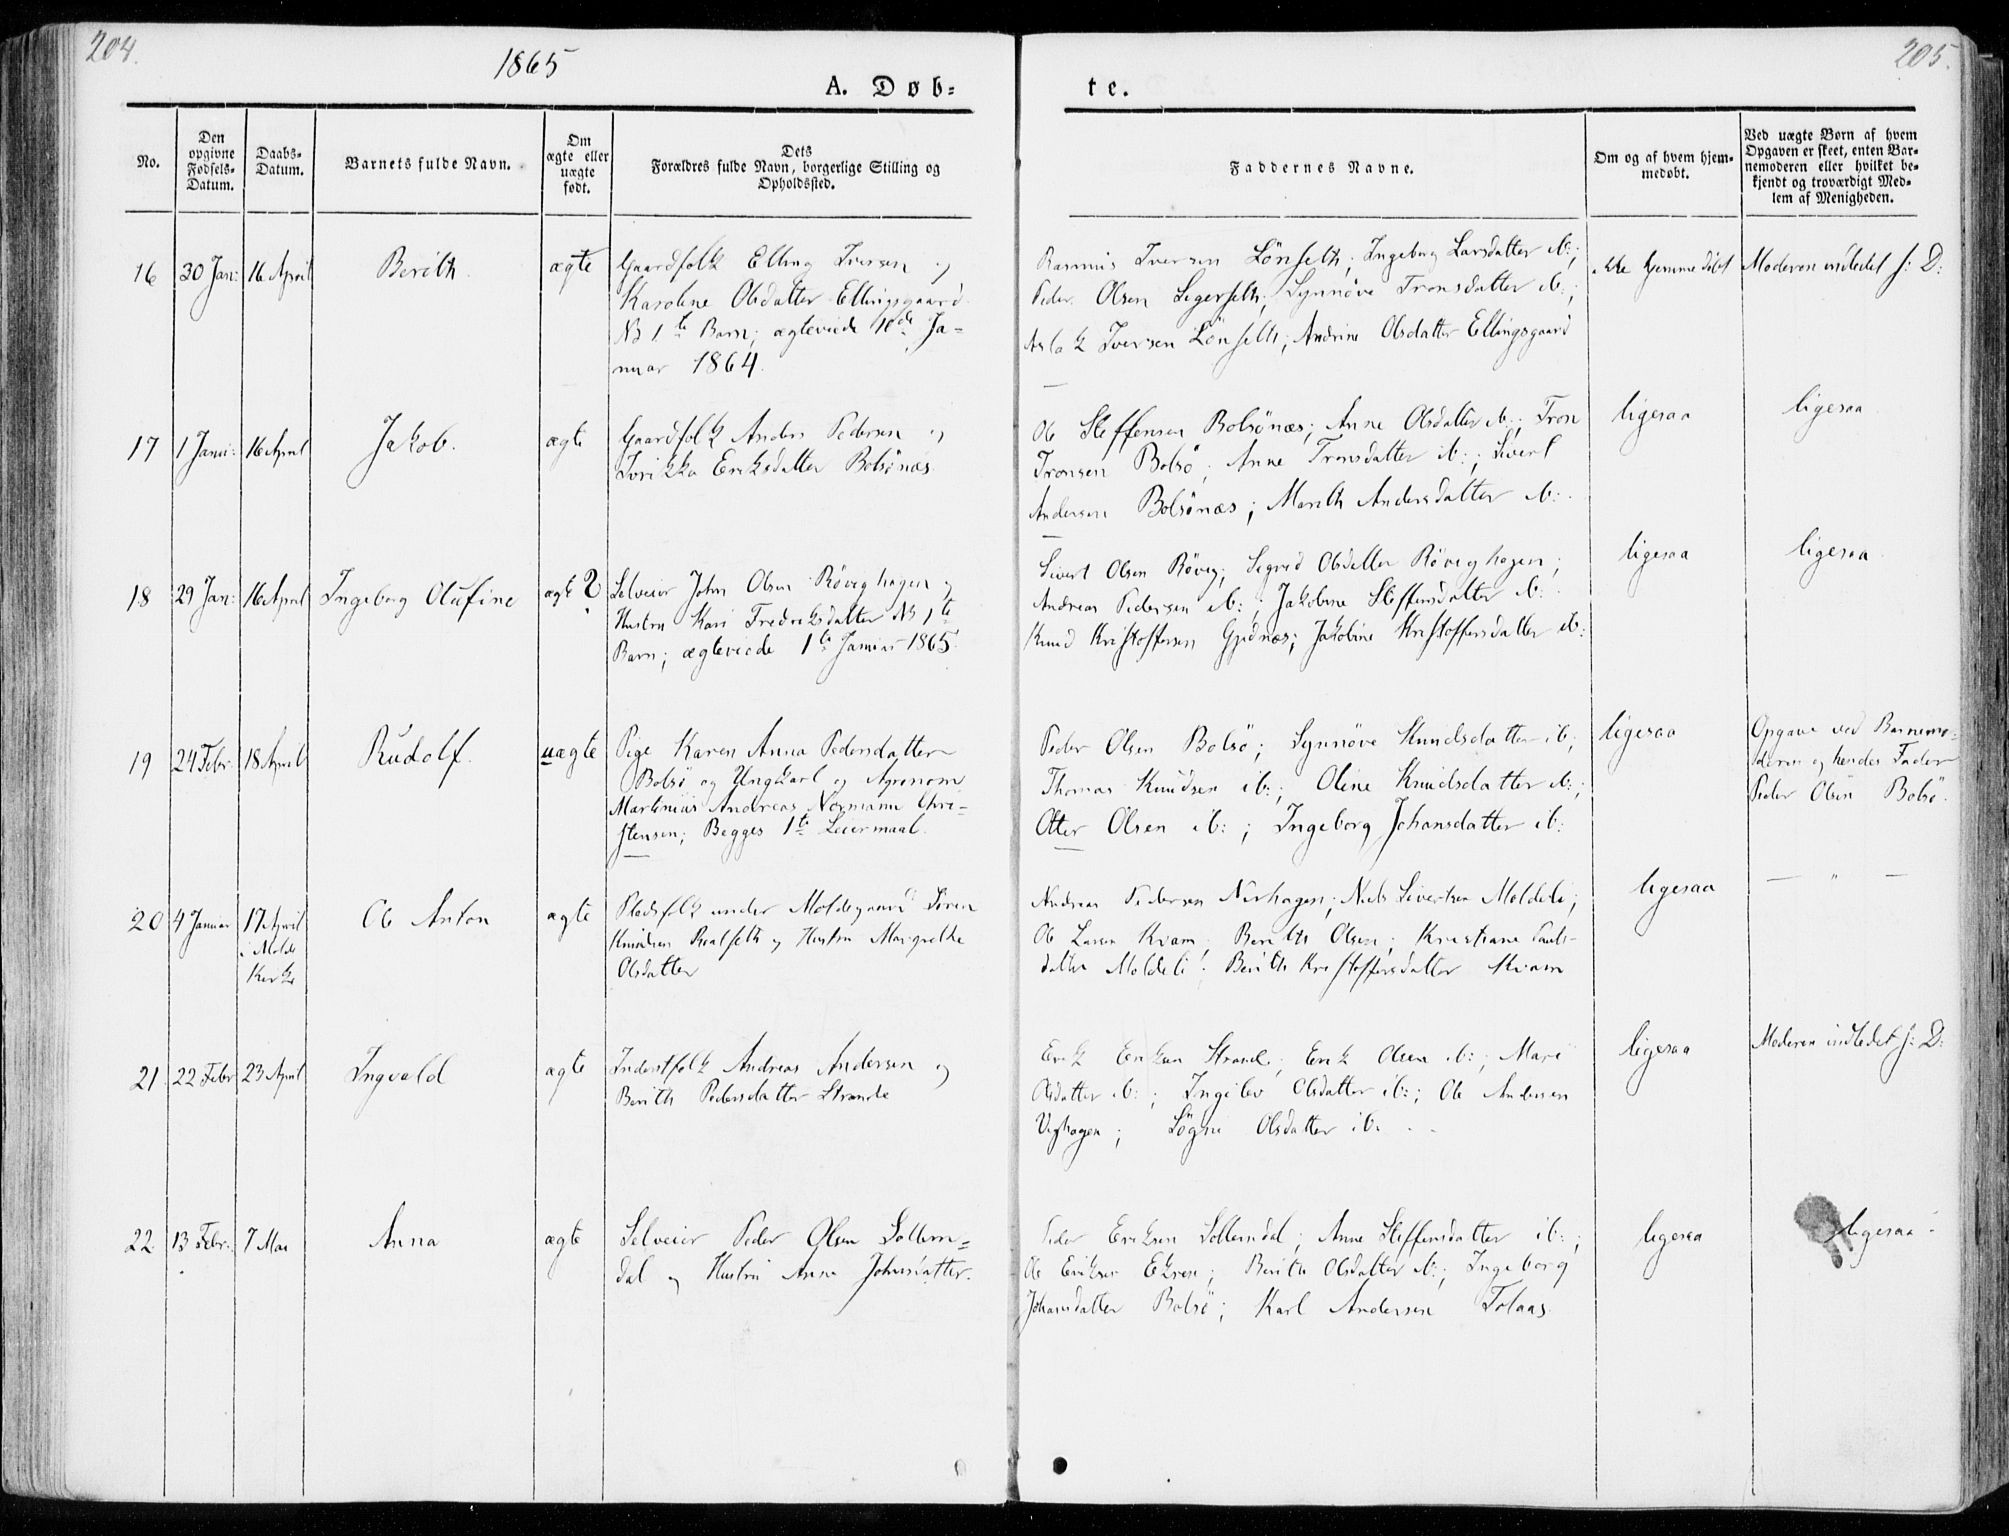 204.
1865
205.
A. Døb=
te.
No.
Den opgivne Fødsels-Datum.
Daabs-Datum.
Barnets fulde Navn.
Om ægte eller uægte født.
Dets
Forældres fulde Navn, borgerlige Stilling og
Opholdssted.
Faddernes Navne.
Om og af hvem hjem-
medøbt.
Ved uægte Børn af hvem
Opgaven er skeet, enten Bar-
nemoderen eller hvilket be-
kjendt og troværdigt Med-
lem af Menigheden.
16
30 Jan:
16 April
Berith
ægte
Gaardfolk Elling Iversen og
Karoline Olsdatter Ellingsgaard
NB 1te Barn; ægteviede 10de Ja-
nuar 1864.
Rasmus Iversen Lönseth; Ingeborg Larsdatter ib:;
Peder Olsen Legerseth; Synnöve Tronsdatter ib:;
Aslak Iversen Lönseth; Andrine Olsdatter Ellingsgaard
ikke hjemmedöbt
Moderen indledet s: D:
17
1 Janu:
16 April
Jakob.
ægte
Gaardfolk Anders Pedersen og
Eriksdatter Bolsönæs
Ole Steffensen Bolsönæs; Anne Olsdatter ib:; Tron
Tronsen Bolsö; Anne Tronsdatter ib:; Sivert
Andersen Bolsönæs; Marith Andersdatter ib:
ligesaa
ligesaa
18
29 Jan:
16 April
Ingeborg Olufine
ægte ?
Selveier John Olsen Röveghagen og
Hustru Kari Fredriksdatter NB 1te
Barn; ægteviede 1te Januar 1865.
Sivert Olsen Röveg; Segred Olsdatter Röveghagen;
Andreas Pedersen ib:; Jakobine Steffensdatter ib:
Knud Kristoffersen Gjidnæs; Jakobine Kristoffersdatter ib:
ligesaa
ligesaa
19
24 Febr:
18 April
Rudolf.
uægte
Pige Karen Anna Pedersdatter
Bolsö og Ungkarl og Agronom
Martinius Andreas Normann Chri-
stensen; Begges 1te Leiermaal.
Peder Olsen Bolsö; Synnöve Knudsdatter ib:;
Thomas Knudsen ib:; Oline Knudsdatter ib:;
Otter Olsen ib:; Ingeborg Johansdatter ib:
ligesaa
Opgave ved Barnemo-
deren og hendes Fader
Peder Olsen Bolsö.
20
4 Januar
17 April
i Molde
Kirke
Ole Anton
ægte
Pladsfolk under Moldegaard Sören
Knudsen Realseth og Hustru Margrethe
Olsdatter
Andreas Pedersen Nerhagen; Niels Sivertsen Moldeli;
Ole Larsen Kvam; Berith Olsen; Kristiane Pauls-
datter Moldeli; Berith Kristoffersdatter Kvam
ligesaa
— " —
21
22 Febr
23 April
Ingvald
ægte
Inderstfolk Andreas Andersen og
Berith Pedersdatter Strande
Erik Eriksen Strande; Erik Olsen ib:; Mari
Olsdatter ib:; Ingilev Olsdatter ib:; Ole Andersen
Veghagen; Olsdatter ib:
ligesaa
Moderen indledet s: D:
22
13 Febr:
7 Mai
Anna
ægte
Selveier Peder Olsen Sollem=
dal og Hustru Anne Johnsdatter.
Peder Eriksen Sollemdal; Anne Steffensdatter ib:;
Ole Eriksen Ekren; Berith Olsdatter ib:; Ingeborg
Johansdatter Bolsö; Karl Andersen Tolaas
ligesaa
ligesaa